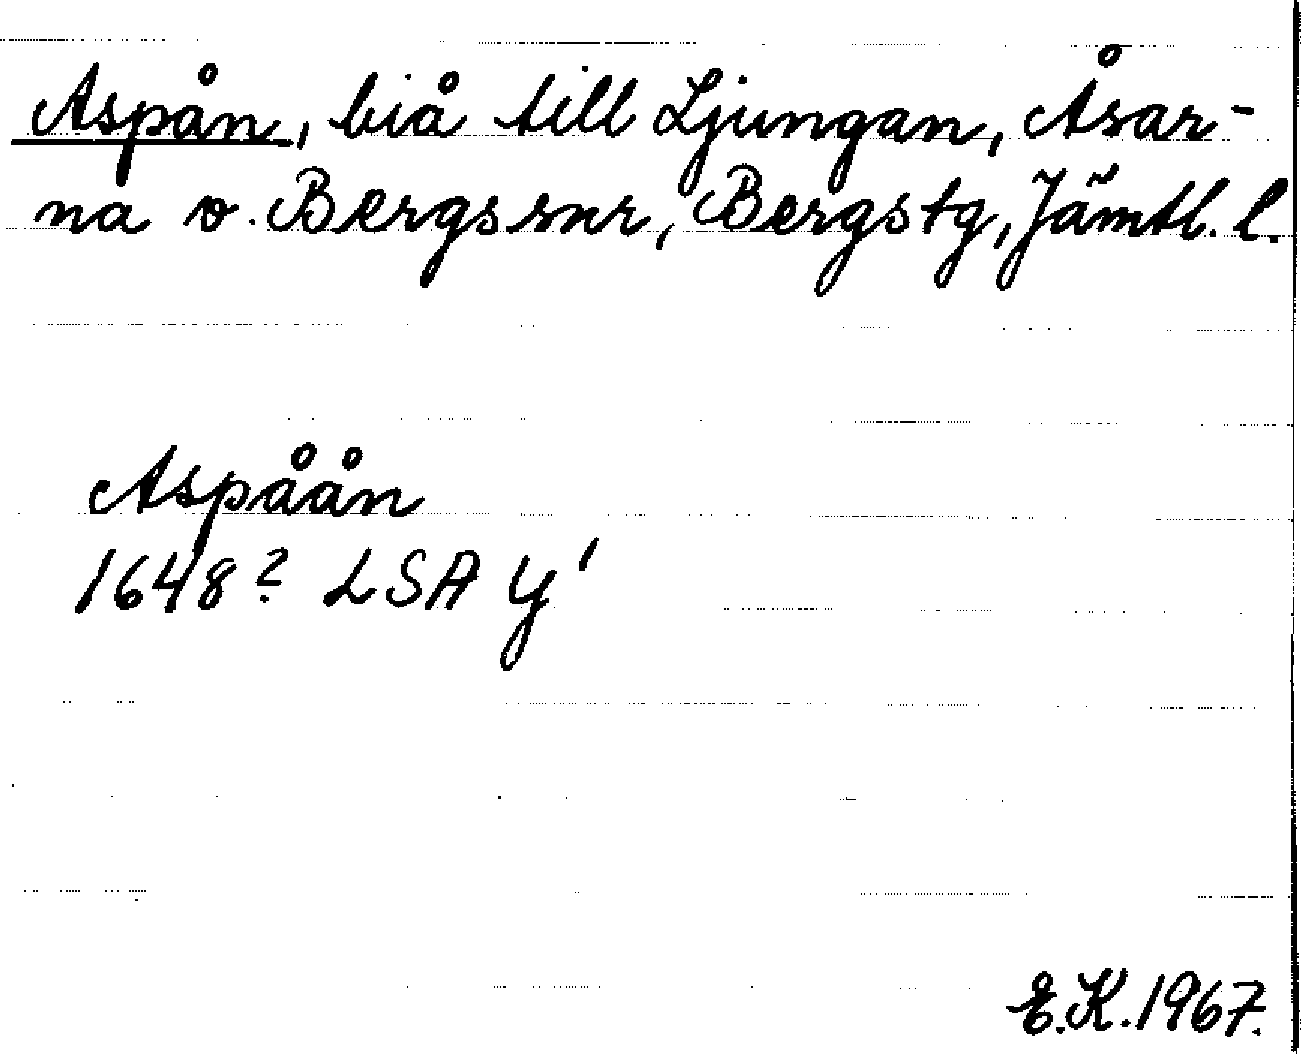 Aspån, biå till Ljungan, Åsar-
na o. Bergs snr, Bergs tg, Jämtl. l.
Aspåån
1648? LSA Y'
E.K. 1967.